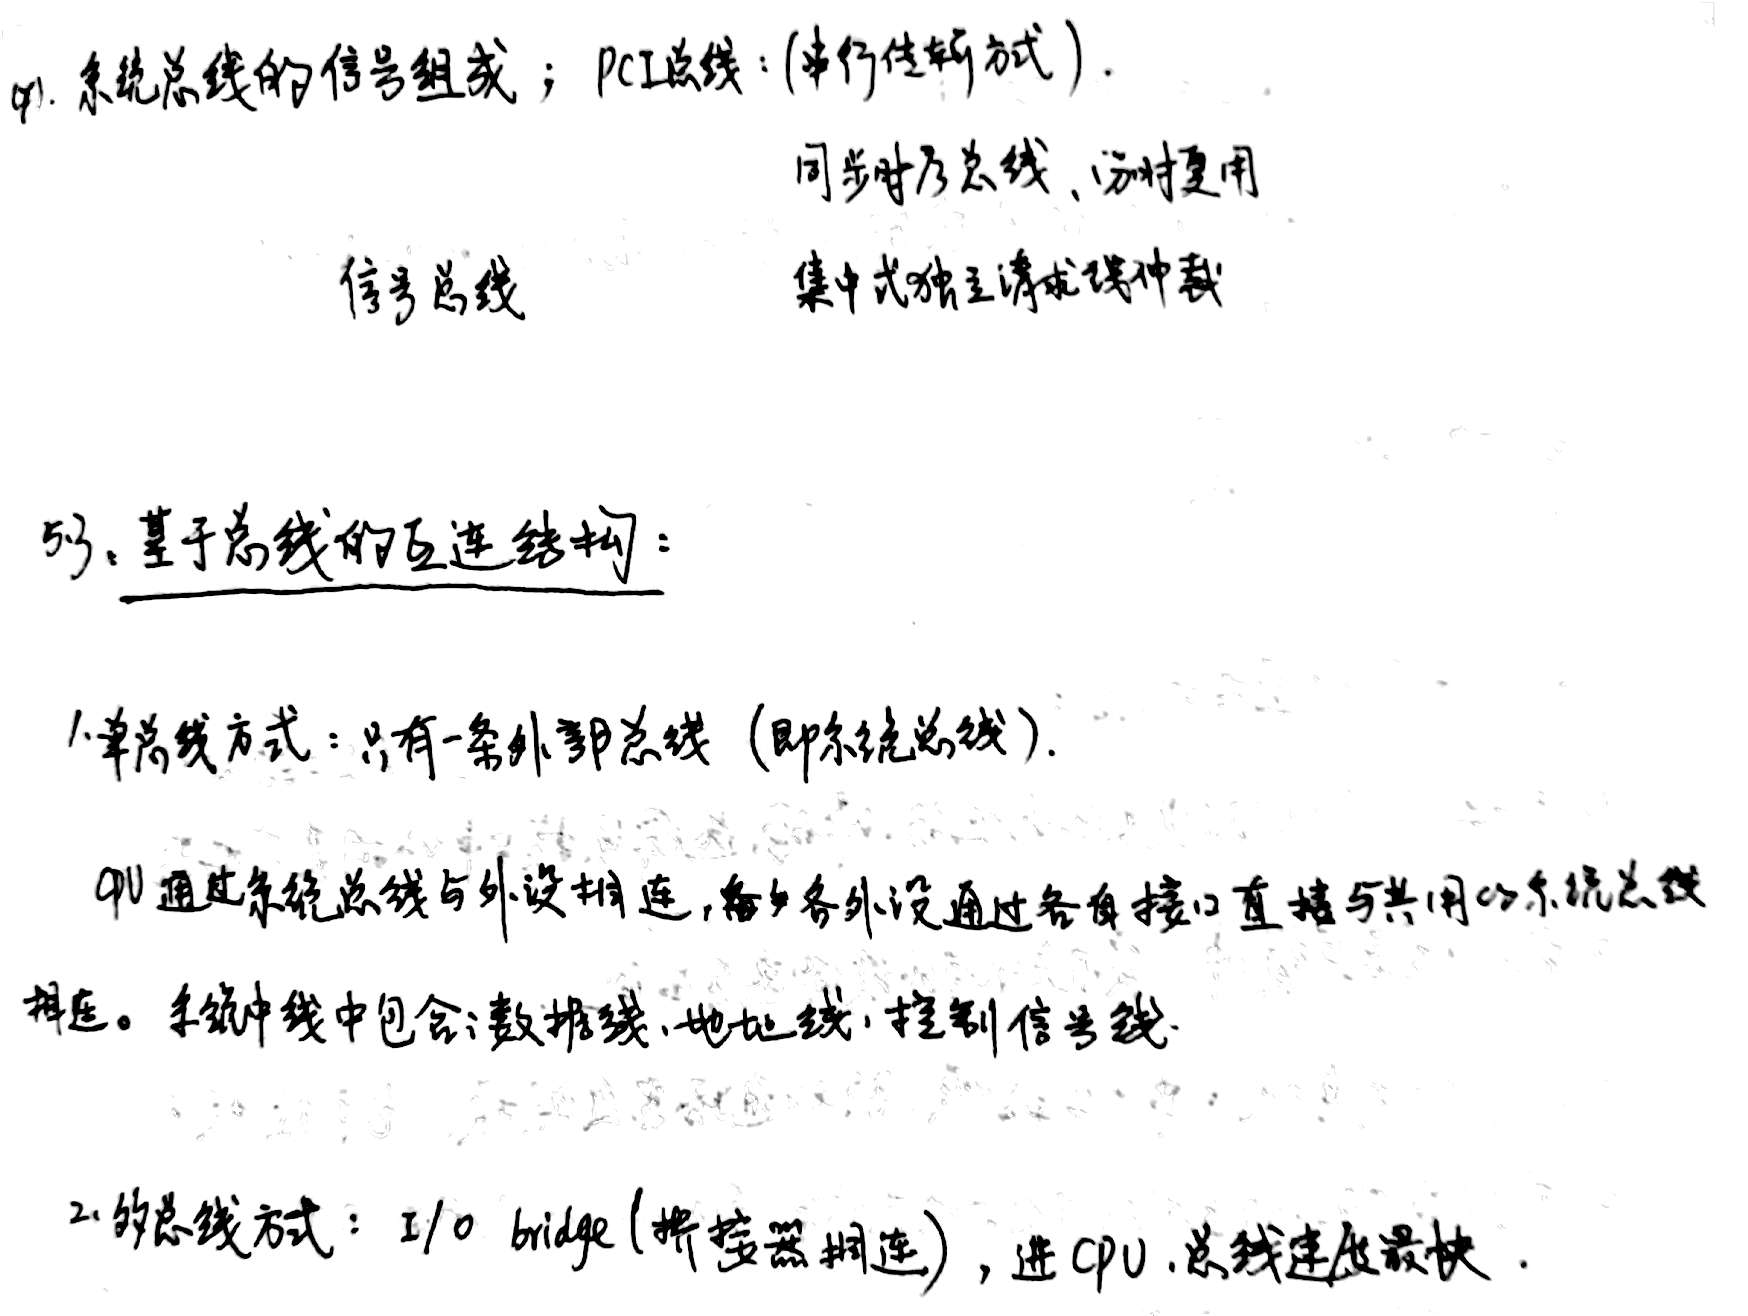 (4). 系统总线的信号组成； PCI总线：(串行传输方式).
同步时序总线、分时复用
信号总线 集中式独立请求线仲裁
5.3、基于总线的互连结构：
1.单总线方式：只有一条外部总线 (即系统总线).
CPU通过系统总线与外设相连，各外设通过各自接口直接与共用的系统总线
相连。系统中线中包含：数据线、地址线、控制信号线.
2.多总线方式： I/O bridge (桥接器相连)， 进CPU、总线速度最快.